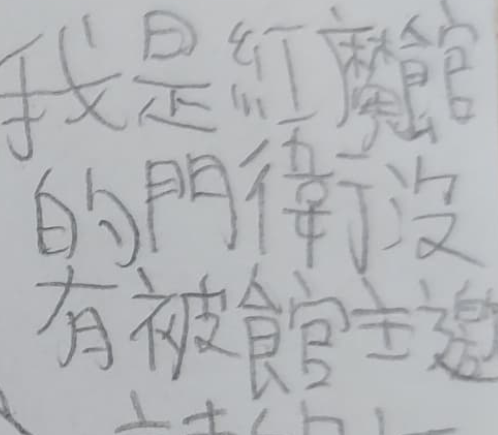 我是紅魔館
的門衛沒
有被館主邀